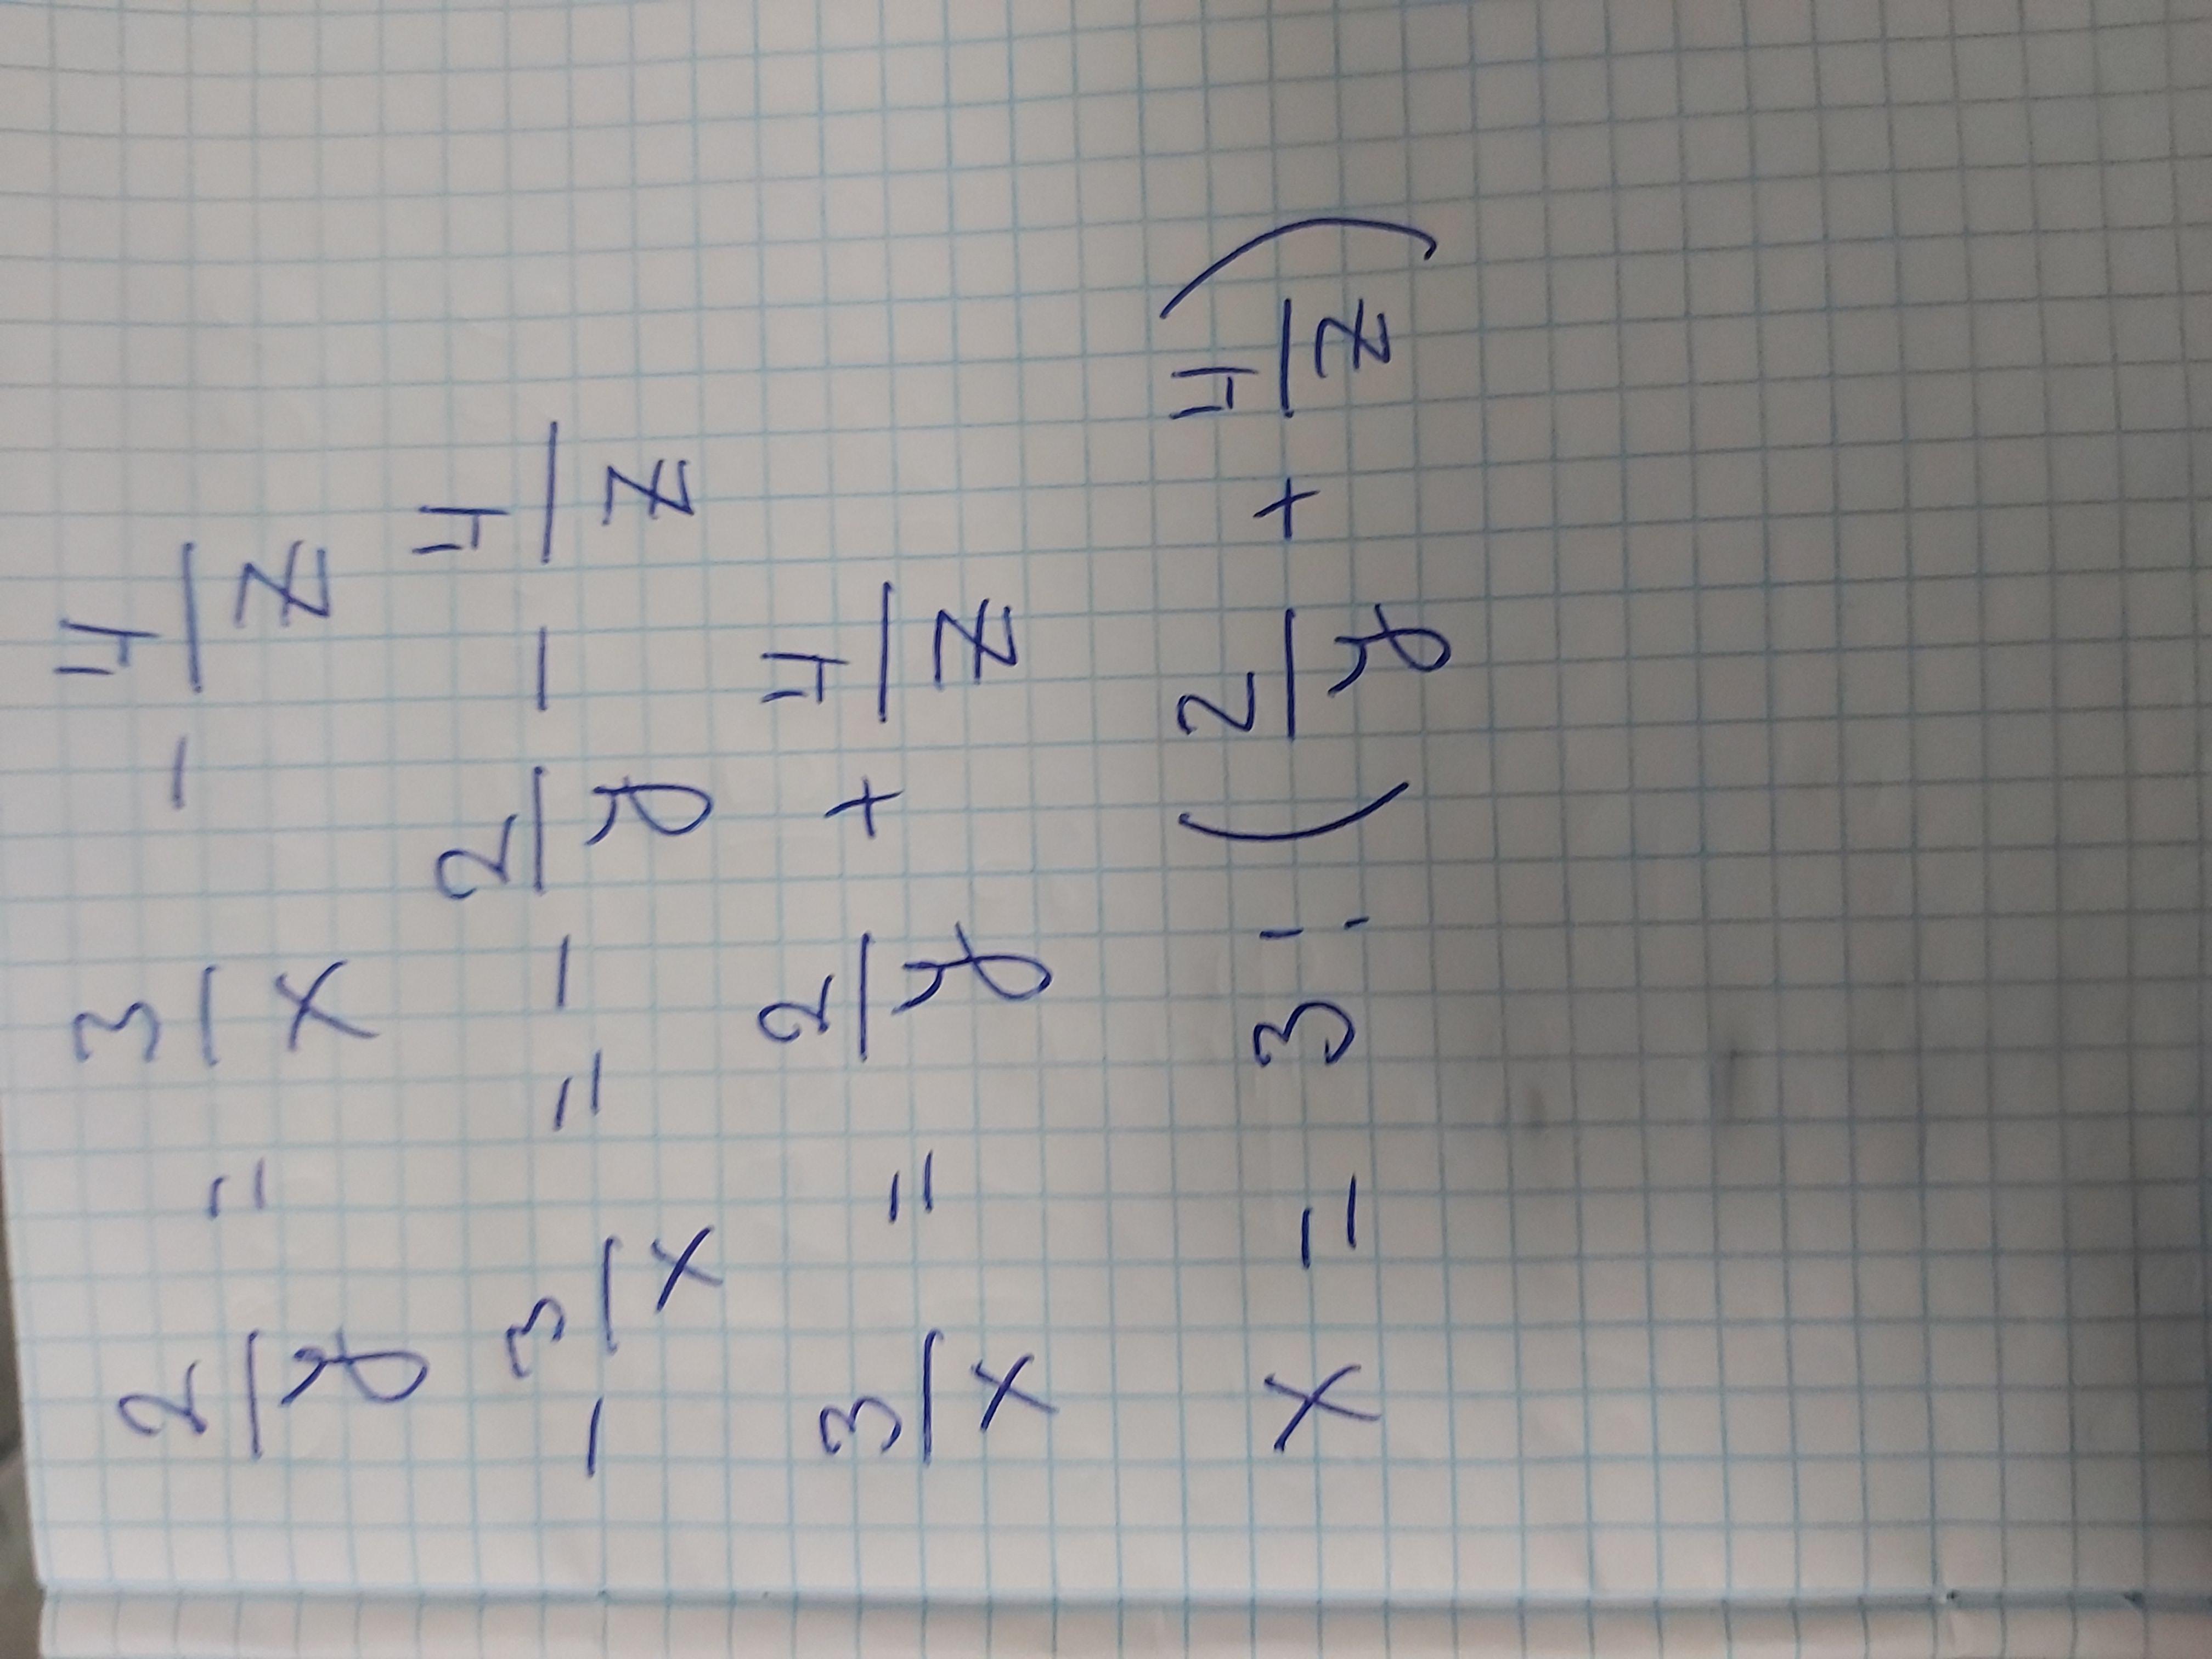 2/y = 3/x - 4/z
- 3/x = - 2/y - 4/z
3/x = 2/y + 4/z
x = 3 : (2/y + 4/z)